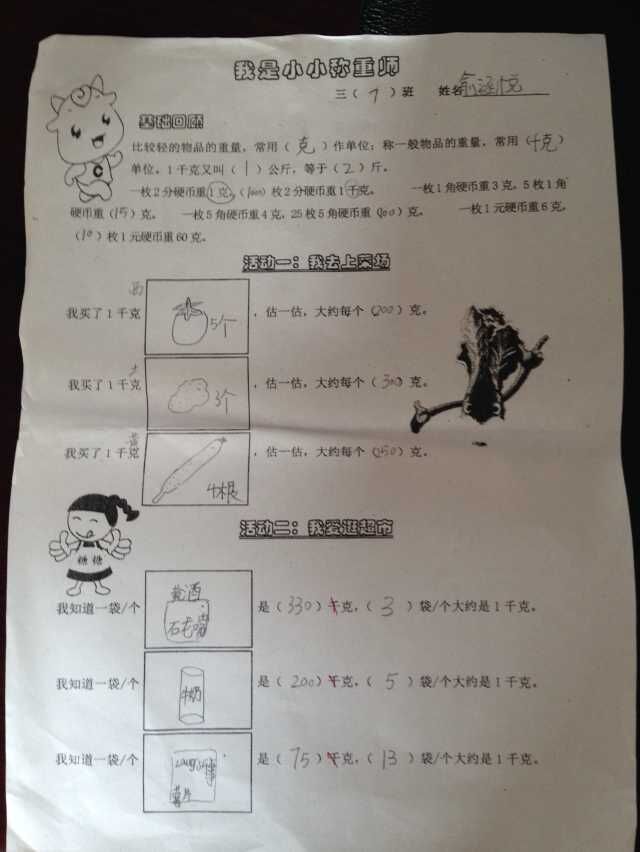 我是小小称重师
三（7）班 姓名
基础回顾
比较轻的物品的重量，常用（克）作单位；称一般物品的重量，常用（千克）
单位。1千克又叫（1）公斤，等于（2）斤。
一枚2分硬币重1克，（1000）枚2分硬币重1千克。 一枚1角硬币重3克，5枚1角
硬币重（15）克。 一枚5角硬币重4克，25枚5角硬币重（100）克。 一枚1元硬币重6克，
（10）枚1元硬币重60克。
活动一：我去上菜场
西
我买了1千克 5个 ，估一估，大约每个（200）克。
土
我买了1千克 3个 ，估一估，大约每个（300）克。
黄
我买了1千克 4根 ，估一估，大约每个（250）克。
活动二：我爱逛超市
糖糖
我知道一袋/个 是（330）千克，（3）袋/个大约是1千克。
我知道一袋/个 牛奶 是（200）千克，（5）袋/个大约是1千克。
我知道一袋/个 薯片 是（75）千克，（13）袋/个大约是1千克。